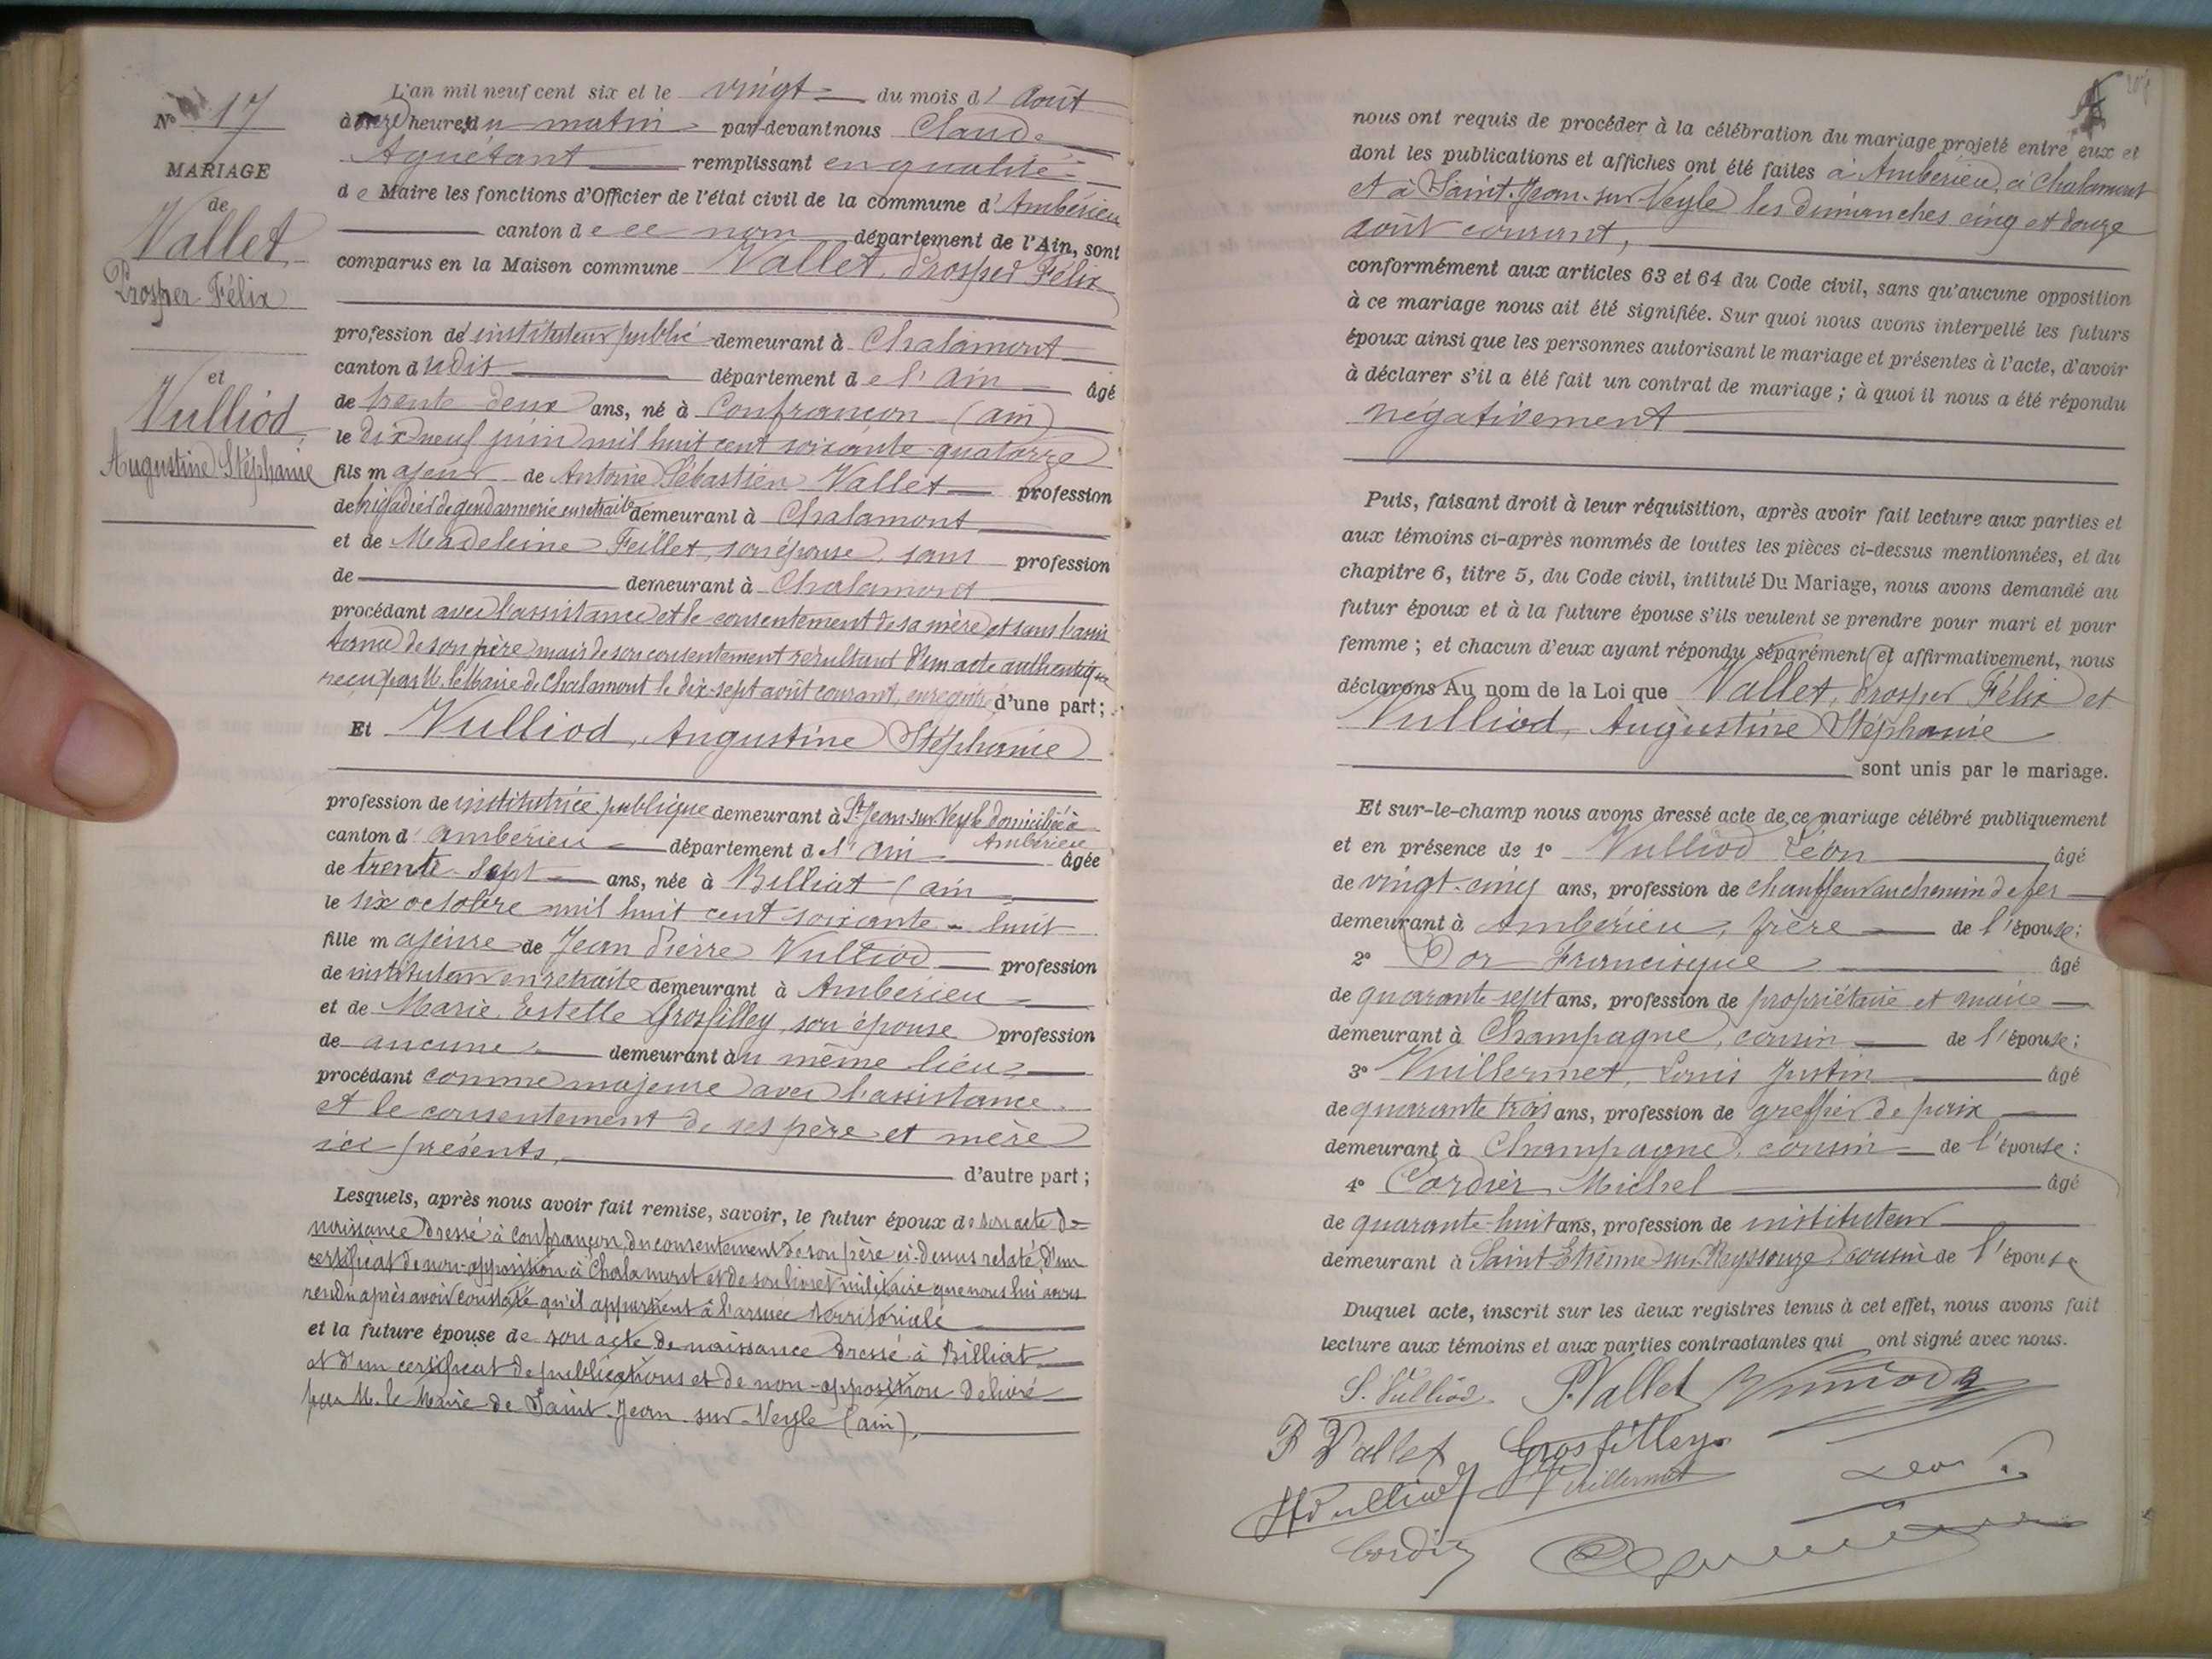 N° 17
MARIAGE
de
Vallet
Prosper Félix
et
Vulliod
Augustine Stéphanie
L'an mil neuf cent six et le vingt du mois d'août
à onze heures du matin par-devant nous Claude
Aguétant remplissant en qualité
de Maire les fonctions d'Officier de l'état civil de la commune d'Ambérieu
canton de ce nom département de l'Ain, sont
comparus en la Maison commune Vallet, Prosper Félix
profession de instituteur public demeurant à Chalamont
canton dudit département de l'Ain âgé
de trente deux ans, né à Confrançon (Ain)
le dix neuf juin mil huit cent soixante quatorze
fils majeur de Antoine Sébastien Vallet profession
de brigadier de gendarmerie en retraite demeurant à Chalamont
et de Madeleine Feillet, son épouse, sans profession
de demeurant à Chalamont
procédant avec l'assistance et le consentement de sa mère et sans l'assis
tance de son père mais de son consentement résultant d'un acte authentique
reçu par M. le Maire de Chalamont le dix-sept août courant, d'une part;
Et Vulliod, Augustine Stéphanie
profession de institutrice publique demeurant à St Jean sur Veyle domiciliée à
Ambérieu
canton d'Ambérieu département de l'Ain âgée
de trente-sept ans, née à Billiat (Ain
le six octobre mil huit cent soixante-huit
fille majeure de Jean Pierre Vulliod profession
de instituteur en retraite demeurant à Ambérieu
et de Marie Estelle Grosfilley, son épouse profession
de aucune demeurant au même lieu
procédant comme majeure avec l'assistance
et le consentement de ses père et mère
ici présents, d'autre part;
Lesquels, après nous avoir fait remise, savoir, le futur époux de son acte de
naissance dressé à Confrançon, du consentement de son père ci-dessus relaté, d'un
certificat de non-opposition à Chalamont et de son livret militaire que nous lui avons
rendu après avoir constaté qu'il appartient à l'armée territoriale
et la future épouse de son acte de naissance dressé à Billiat
et d'un certificat de publications et de non-opposition délivré
par M. le Maire de Saint-Jean-sur-Veyle (Ain),
nous ont requis de procéder à la célébration du mariage projeté entre eux et
dont les publications et affiches ont été faites à Ambérieu, à Chalamont
et à Saint-Jean-sur-Veyle les dimanches cinq et douze
août courant,
conformément aux articles 63 et 64 du Code civil, sans qu'aucune opposition
à ce mariage nous ait été signifiée. Sur quoi nous avons interpellé les futurs
époux ainsi que les personnes autorisant le mariage et présentes à l'acte, d'avoir
à déclarer s'il a été fait un contrat de mariage; à quoi il nous a été répondu
négativement
Puis, faisant droit à leur réquisition, après avoir fait lecture aux parties et
aux témoins ci-après nommés de toutes les pièces ci-dessus mentionnées, et du
chapitre 6, titre 5, du Code civil, intitulé Du Mariage, nous avons demandé au
futur époux et à la future épouse s'ils veulent se prendre pour mari et pour
femme; et chacun d'eux ayant répondu séparément et affirmativement, nous
déclarons Au nom de la Loi que Vallet, Prosper Félix et
Vulliod, Augustine Stéphanie
sont unis par le mariage.
Et sur-le-champ nous avons dressé acte de ce mariage célébré publiquement
et en présence de 1° Vulliod Léon âgé
de vingt-cinq ans, profession de chauffeur au chemin de fer
demeurant à Ambérieu, frère de l'épouse;
2° Dor Francisque âgé
de quarante-sept ans, profession de propriétaire et maire
demeurant à Champagne, cousin de l'épouse;
3° Vuillermet, Louis Justin âgé
de quarante trois ans, profession de greffier de paix
demeurant à Champagne, cousin de l'épouse;
4° Cordier Michel âgé
de quarante-huit ans, profession de instituteur
demeurant à Saint-Etienne-sur-Reyssouze, cousin de l'épouse
Duquel acte, inscrit sur les deux registres tenus à cet effet, nous avons fait
lecture aux témoins et aux parties contractantes qui ont signé avec nous.
S. Vulliod P. Vallet
Vallet Grosfilley
Vulliod Vuillermet
Cordier